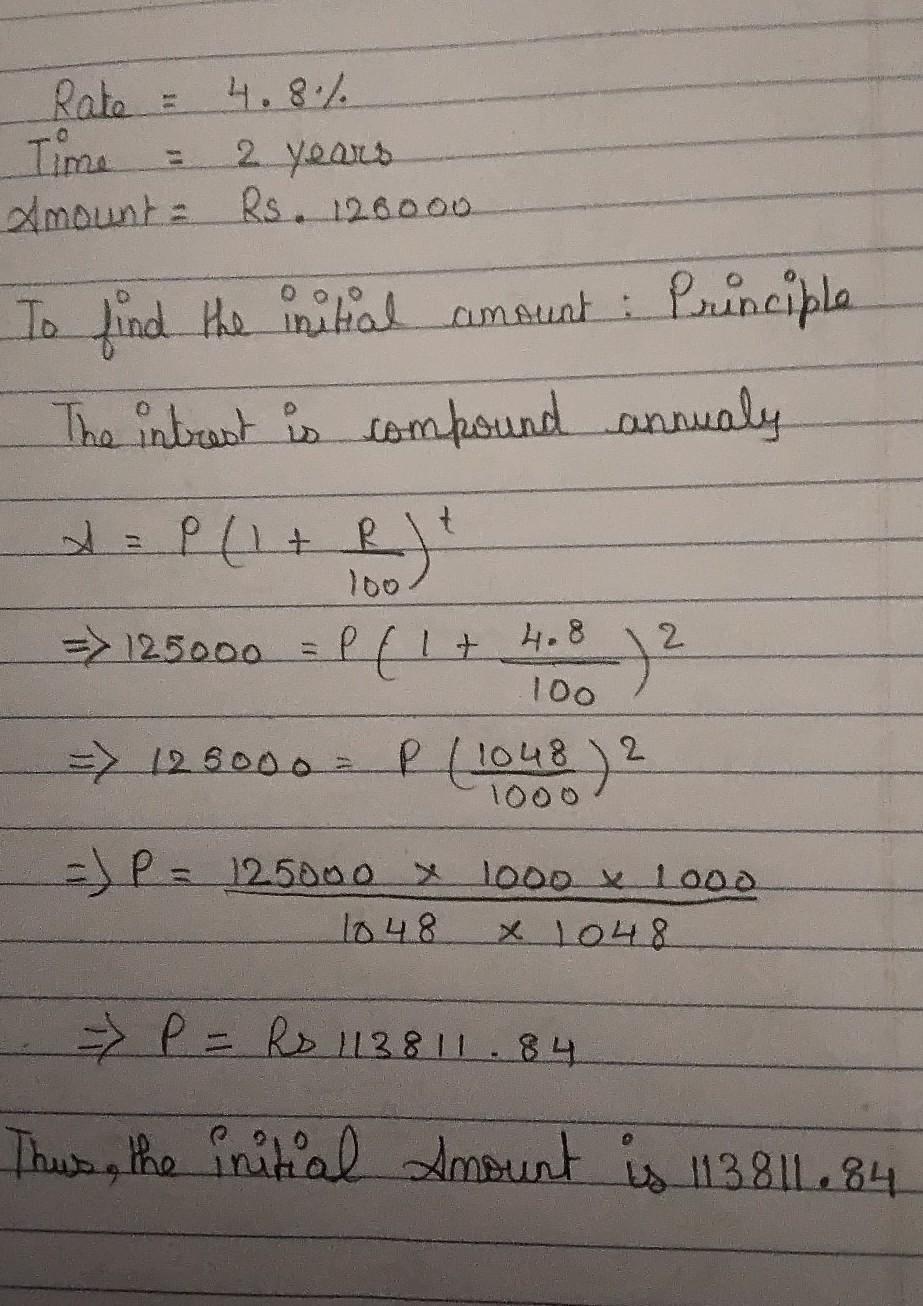 Rate = 4.8%
Time = 2 years
Amount = Rs. 125000
To find the initial amount : Principle
The intrest is compound annualy
A = P(1 + R/100)^t
=> 125000 = P(1 + 4.8/100)^2
=> 125000 = P(1048/1000)^2
=> P = 125000 x 1000 x 1000 / 1048 x 1048
=> P = Rs 113811.84
Thus, the initial Amount is 113811.84